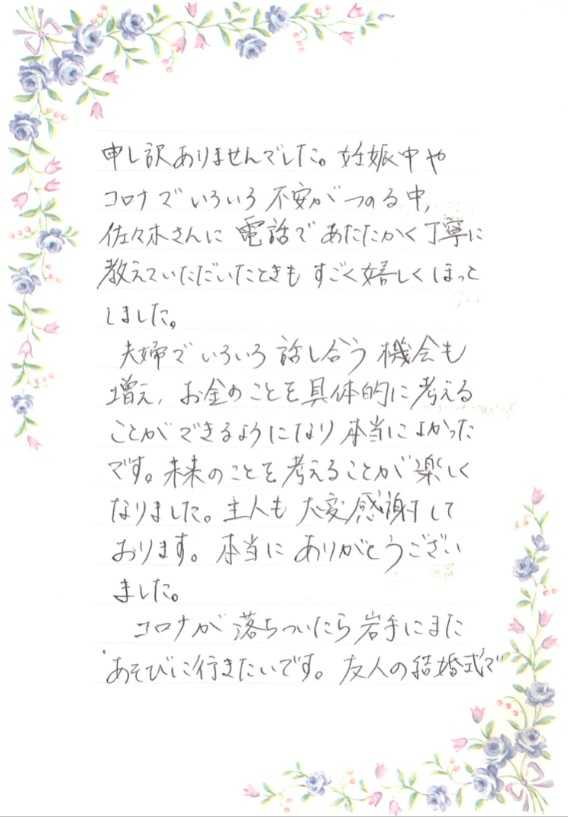 申し訳ありませんでした。妊娠中や
コロナでいろいろ不安がつのる中,
佐々木さんに電話であたたかく丁寧に
教えていただいたときもすごく嬉しくほっと
しました。
夫婦でいろいろ話し合う機会も
増え, お金のことを具体的に考える
ことができるようになり本当によかった
です。未来のことを考えることが楽しく
なりました。主人も大変感謝して
おります。本当にありがとうござい
ました。
コロナが落ちついたら岩手にまた
あそびに行きたいです。友人の結婚式で